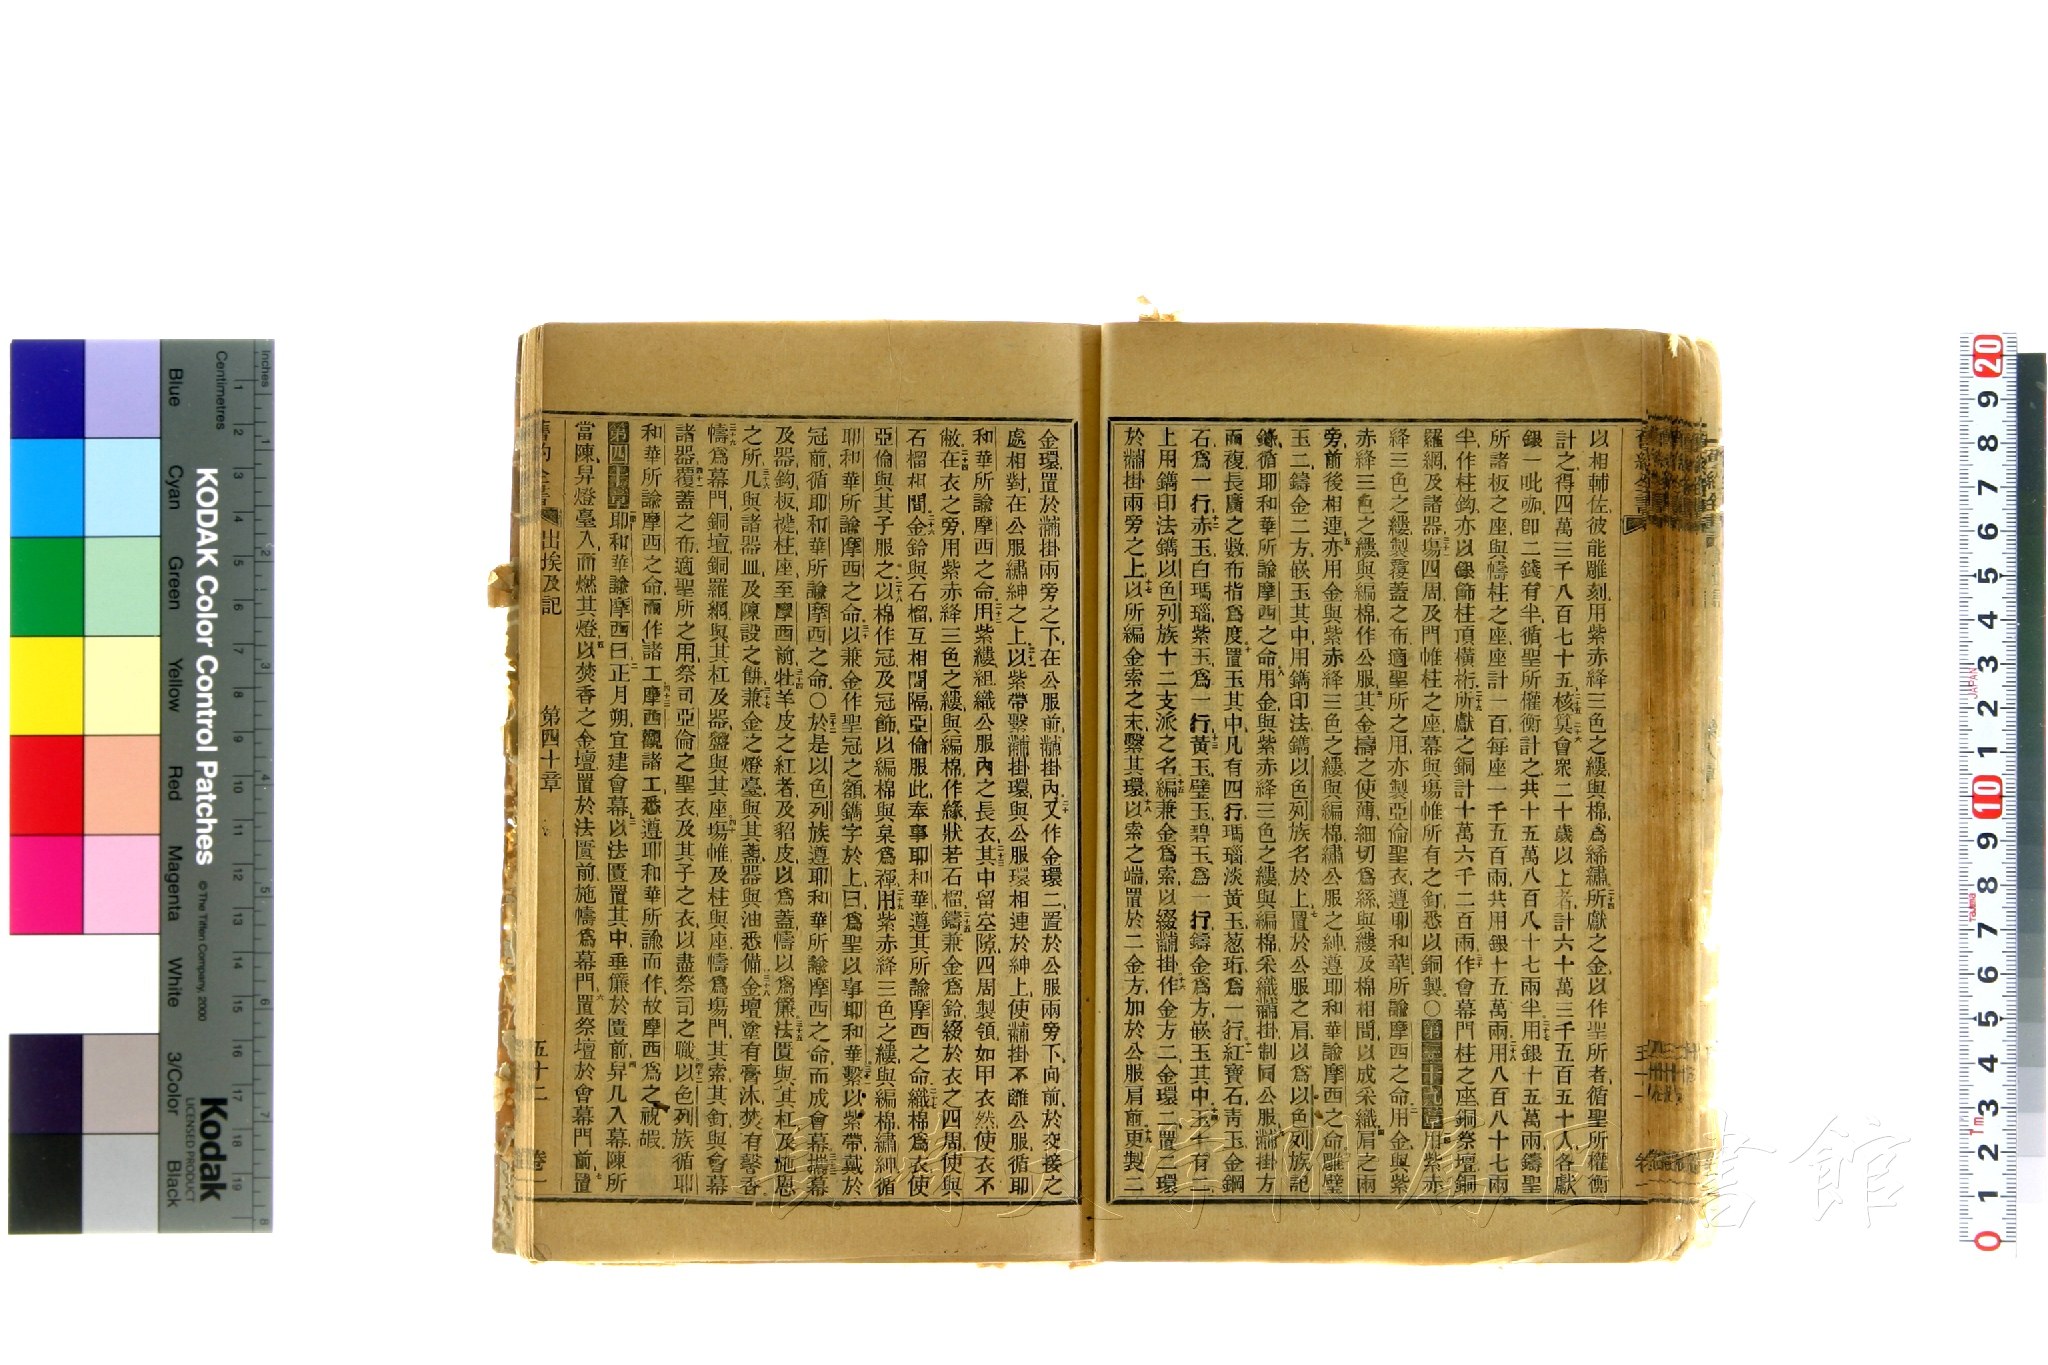 以相輔佐彼能雕刻用紫赤絳三色之縷與棉爲絺繡所獻之金以作聖所者循聖所權衡
計之得四萬三千八百七十五核算會衆二十歲以上者計六十萬三千五百五十人各獻
銀一吡咖卽二錢有半循聖所權衡計之共十五萬八百八十七兩半用銀十五萬兩鑄聖
所諸板之座與幬柱之座座計一百每座一千五百兩共用銀十五萬兩用八百八十七兩
半作柱鈎亦以銀飾柱頂橫桁所獻之銅計十萬六千二百兩作會幕門柱之座銅祭壇銅
羅網及諸器塲四周及門帷柱之座幕與塲帷所有之釘悉以銅製〇第三十九章用紫赤
絳三色之縷製覆蓋之布適聖所之用亦製亞倫聖衣遵耶和華所諭摩西之命用金與紫
赤絳三色之縷與編棉作公服其金擣之使薄細切爲絲與縷及棉相間以成采織肩之兩
旁前後相連亦用金與紫赤絳三色之縷與編棉繡公服之紳遵耶和華諭摩西之命雕璧
玉二鑄金二方嵌玉其中用鐫印法鐫以色列族名於上置於公服之肩以爲以色列族記
錄循耶和華所諭摩西之命用金與紫赤絳三色之縷與編棉采織黼掛制同公服黼掛方
而複長廣之數布指爲度置玉其中凡有四行瑪瑙淡黃玉葱珩爲一行紅寶石靑玉金鋼
石爲一行赤玉白瑪瑙紫玉爲一行黃玉璧玉碧玉爲一行鑄金爲方嵌玉其中玉十有二
上用鐫印法鐫以色列族十二支派之名編兼金爲索以綴黼掛作金方二金環二置二環
於黼掛兩旁之上以所編金索之末繫其環以索之端置於二金方加於公服肩前更製二
金環置於黼掛兩旁之下在公服前黼掛內又作金環二置於公服兩旁下向前於交接之
處相對在公服繡紳之上以紫帶繫黼掛環與公服環相連於紳上使黼掛不離公服循耶
和華所諭摩西之命用紫縷組織公服內之長衣其中留空隙四周製領如甲衣然使衣不
敝在衣之旁用紫赤絳三色之縷與編棉作緣狀若石榴鑄兼金爲鈴綴於衣之四周使與
石榴相間金鈴與石榴互相間隔亞倫服此奉事耶和華遵其所諭摩西之命織棉爲衣使
亞倫與其子服之以棉作冠及冠飾以編棉與枲爲褌用紫赤絳三色之縷與編棉繡紳循
耶和華所諭摩西之命以兼金作聖冠之額鐫字於上曰爲聖以事耶和華繫以紫帶戴於
冠前循耶和華所諭摩西之命〇於是以色列族遵耶和華所諭摩西之命而成會幕攜幕
及器鈎板楗柱座至摩西前牡羊皮之紅者及貂皮以爲蓋幬以爲簾法匱與其杠及施恩
之所几與諸器皿及陳設之餅兼金之燈臺與其盞器與油悉備金壇塗有膏沐焚有馨香
幬爲幕門銅壇銅羅網與其杠及器盥與其座塲帷及柱與座幬爲塲門其索其釘與會幕
諸器覆蓋之布適聖所之用祭司亞倫之聖衣及其子之衣以盡祭司之職以色列族循耶
和華所諭摩西之命而作諸工摩西觀諸工悉遵耶和華所諭而作故摩西爲之祝嘏
第四十章耶和華諭摩西曰正月朔宜建會幕以法匱置其中垂簾於匱前舁几入幕陳所
當陳舁燈臺入而燃其燈以焚香之金壇置於法匱前施幬爲幕門置祭壇於會幕門前置
舊約全書 出埃及記 第四十章 五十二 卷一
KODAK Color Control Patches © The Tiffen Company, 2000
Kodak LICENSED PRODUCT
Inches Centimetres
Blue Cyan Green Yellow Red Magenta White 3/Color Black
長崎大学附属図書館